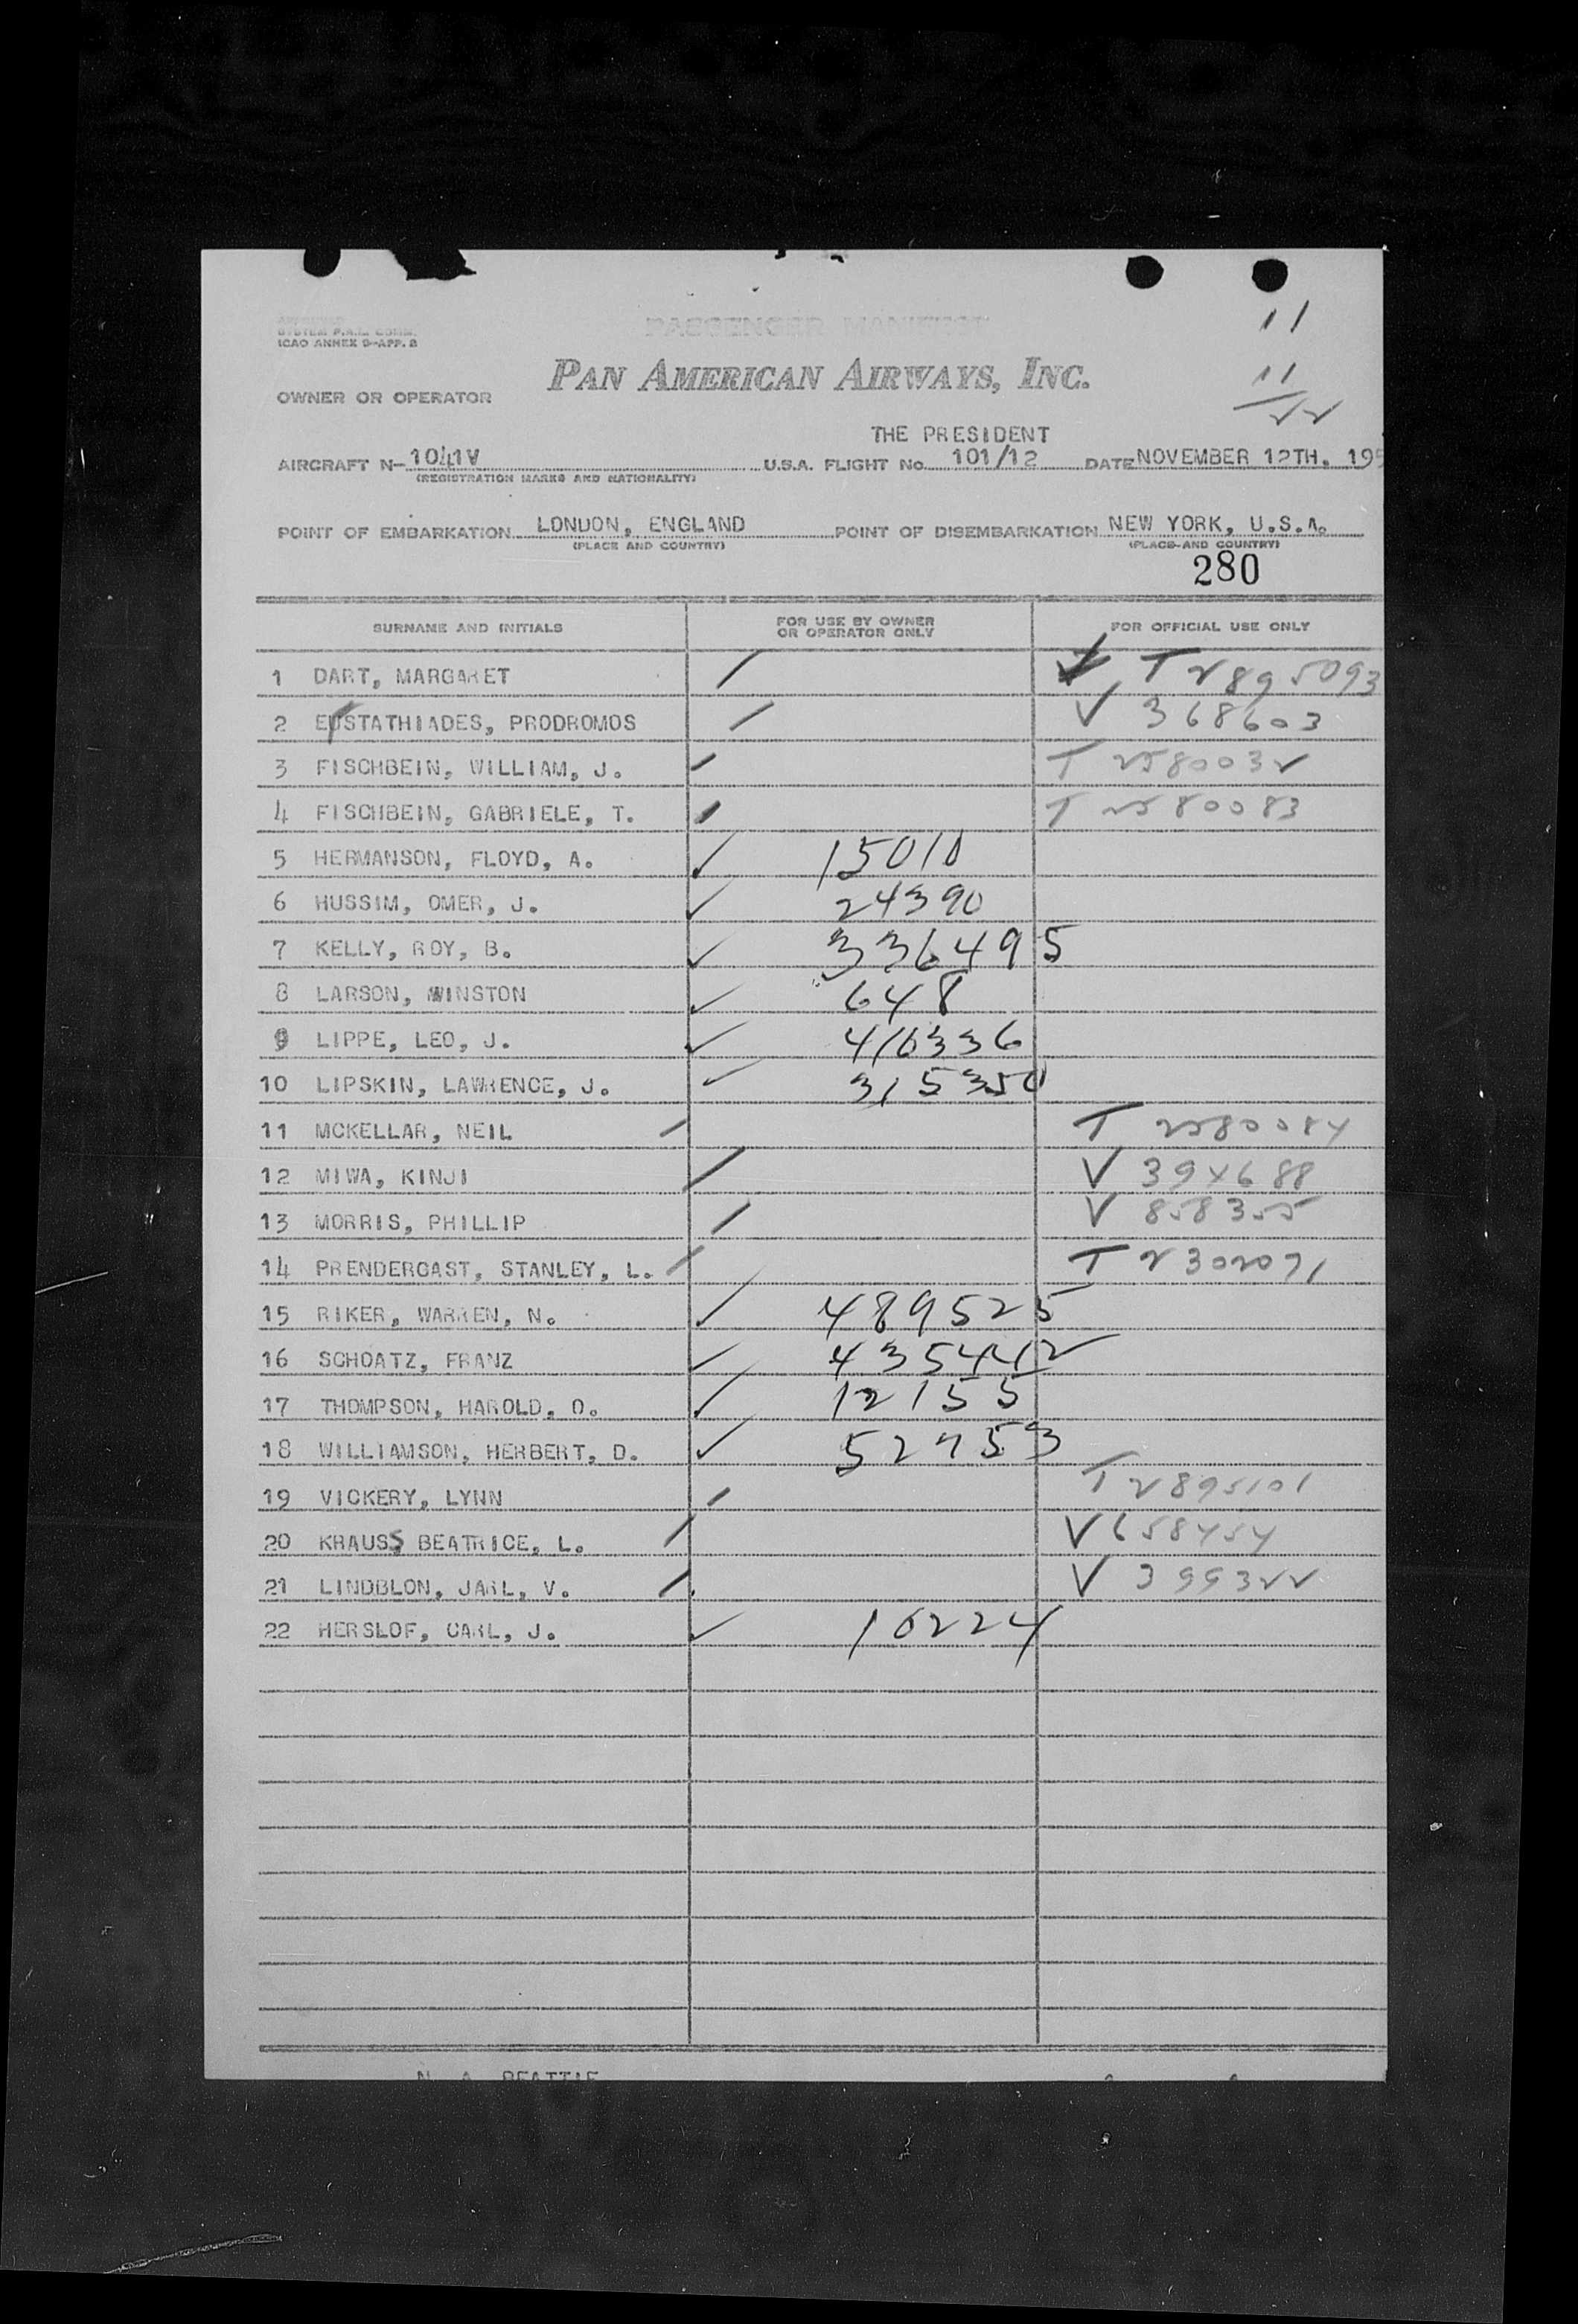 SYSTEM P.A.L. COMM.
ICAO ANNEX 9-APP. 2
PASSENGER MANIFEST
11
PAN AMERICAN AIRWAYS, INC.
11
OWNER OR OPERATOR
22
THE PRESIDENT
AIRCRAFT N- 1041V U.S.A. FLIGHT No. 101/12 DATE NOVEMBER 12TH. 195
(REGISTRATION MARKS AND NATIONALITY)
POINT OF EMBARKATION LONDON, ENGLAND POINT OF DISEMBARKATION NEW YORK, U.S.A.
(PLACE AND COUNTRY) (PLACE AND COUNTRY)
280
SURNAME AND INITIALS FOR USE BY OWNER OR OPERATOR ONLY FOR OFFICIAL USE ONLY
1 DART, MARGARET T 2895093
2 EUSTATHIADES, PRODROMOS V 368603
3 FISCHBEIN, WILLIAM, J. T 2580032
4 FISCHBEIN, GABRIELE, T. T 2580083
5 HERMANSON, FLOYD, A. 15010
6 HUSSIM, OMER, J. 24390
7 KELLY, ROY, B. 336495
8 LARSON, WINSTON 648
9 LIPPE, LEO, J. 416336
10 LIPSKIN, LAWRENCE, J. 315350
11 MCKELLAR, NEIL T 2580084
12 MIWA, KINJI V 394688
13 MORRIS, PHILLIP V 858355
14 PRENDERGAST, STANLEY, L. T 2302071
15 RIKER, WARREN, N. 489525
16 SCHOATZ, FRANZ 435442
17 THOMPSON, HAROLD, O. 12155
18 WILLIAMSON, HERBERT, D. 52753
19 VICKERY, LYNN T 2895101
20 KRAUSS BEATRICE, L. V 658454
21 LINDBLON, JARL, V. V 399322
22 HERSLOF, CARL, J. 16224
N. A. BEATTIE